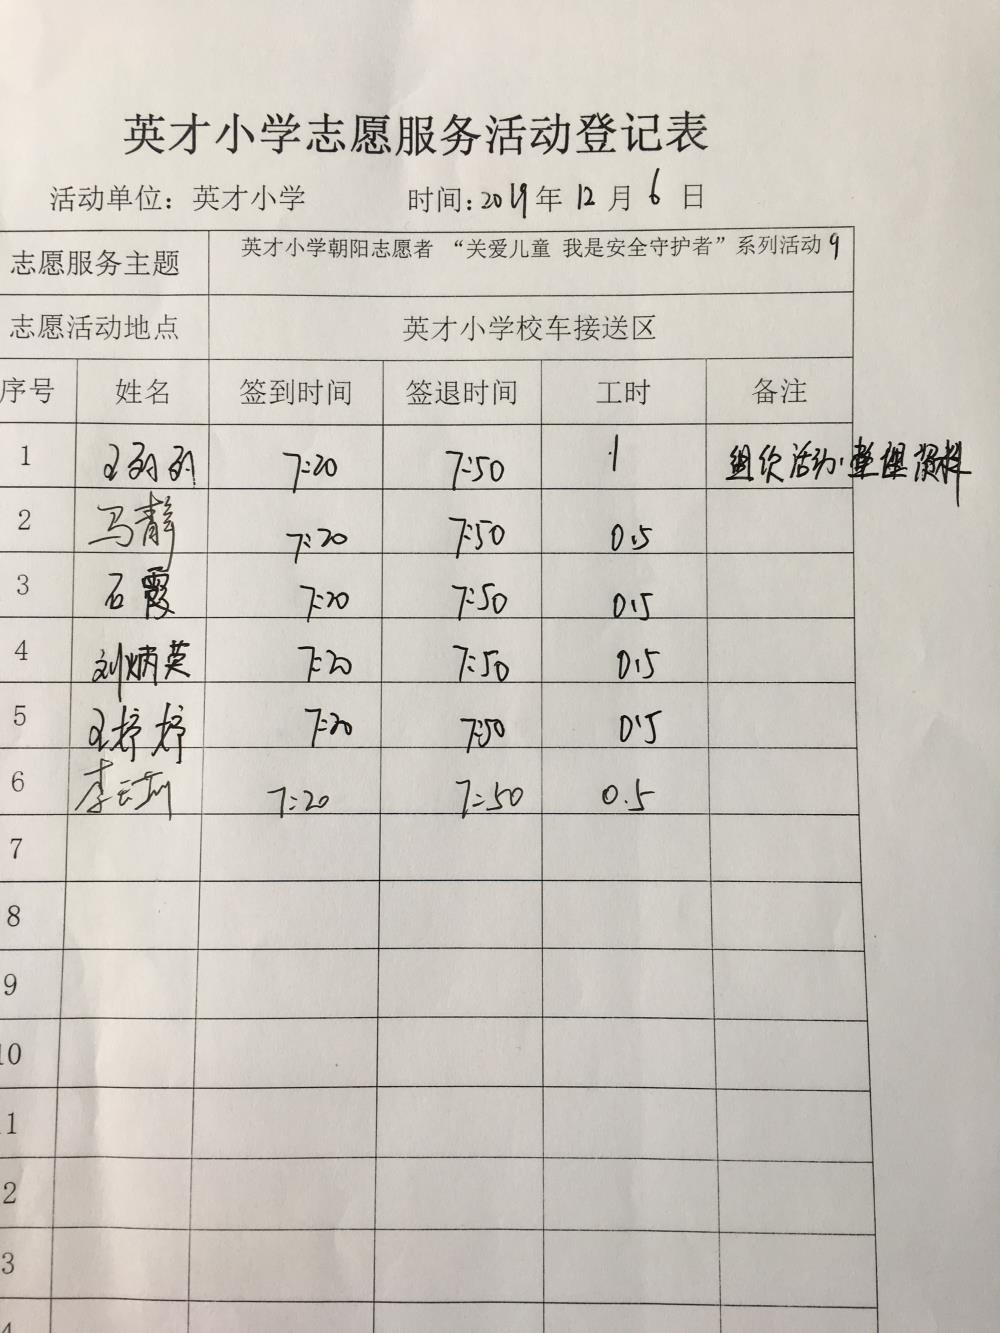 英才小学志愿服务活动登记表
活动单位：英才小学 时间：2019年12月6日
志愿服务主题 英才小学朝阳志愿者 “关爱儿童 我是安全守护者”系列活动9
志愿活动地点 英才小学校车接送区
序号 姓名 签到时间 签退时间 工时 备注
1 7:20 7:50 1 组织活动·整理资料
2 马静 7:20 7:50 0.5
3 石霞 7:20 7:50 0.5
4 刘炳英 7:20 7:50 0.5
5 王婷婷 7:20 7:50 0.5
6 李云 7:20 7:50 0.5
7
8
9
10
1
2
3
4